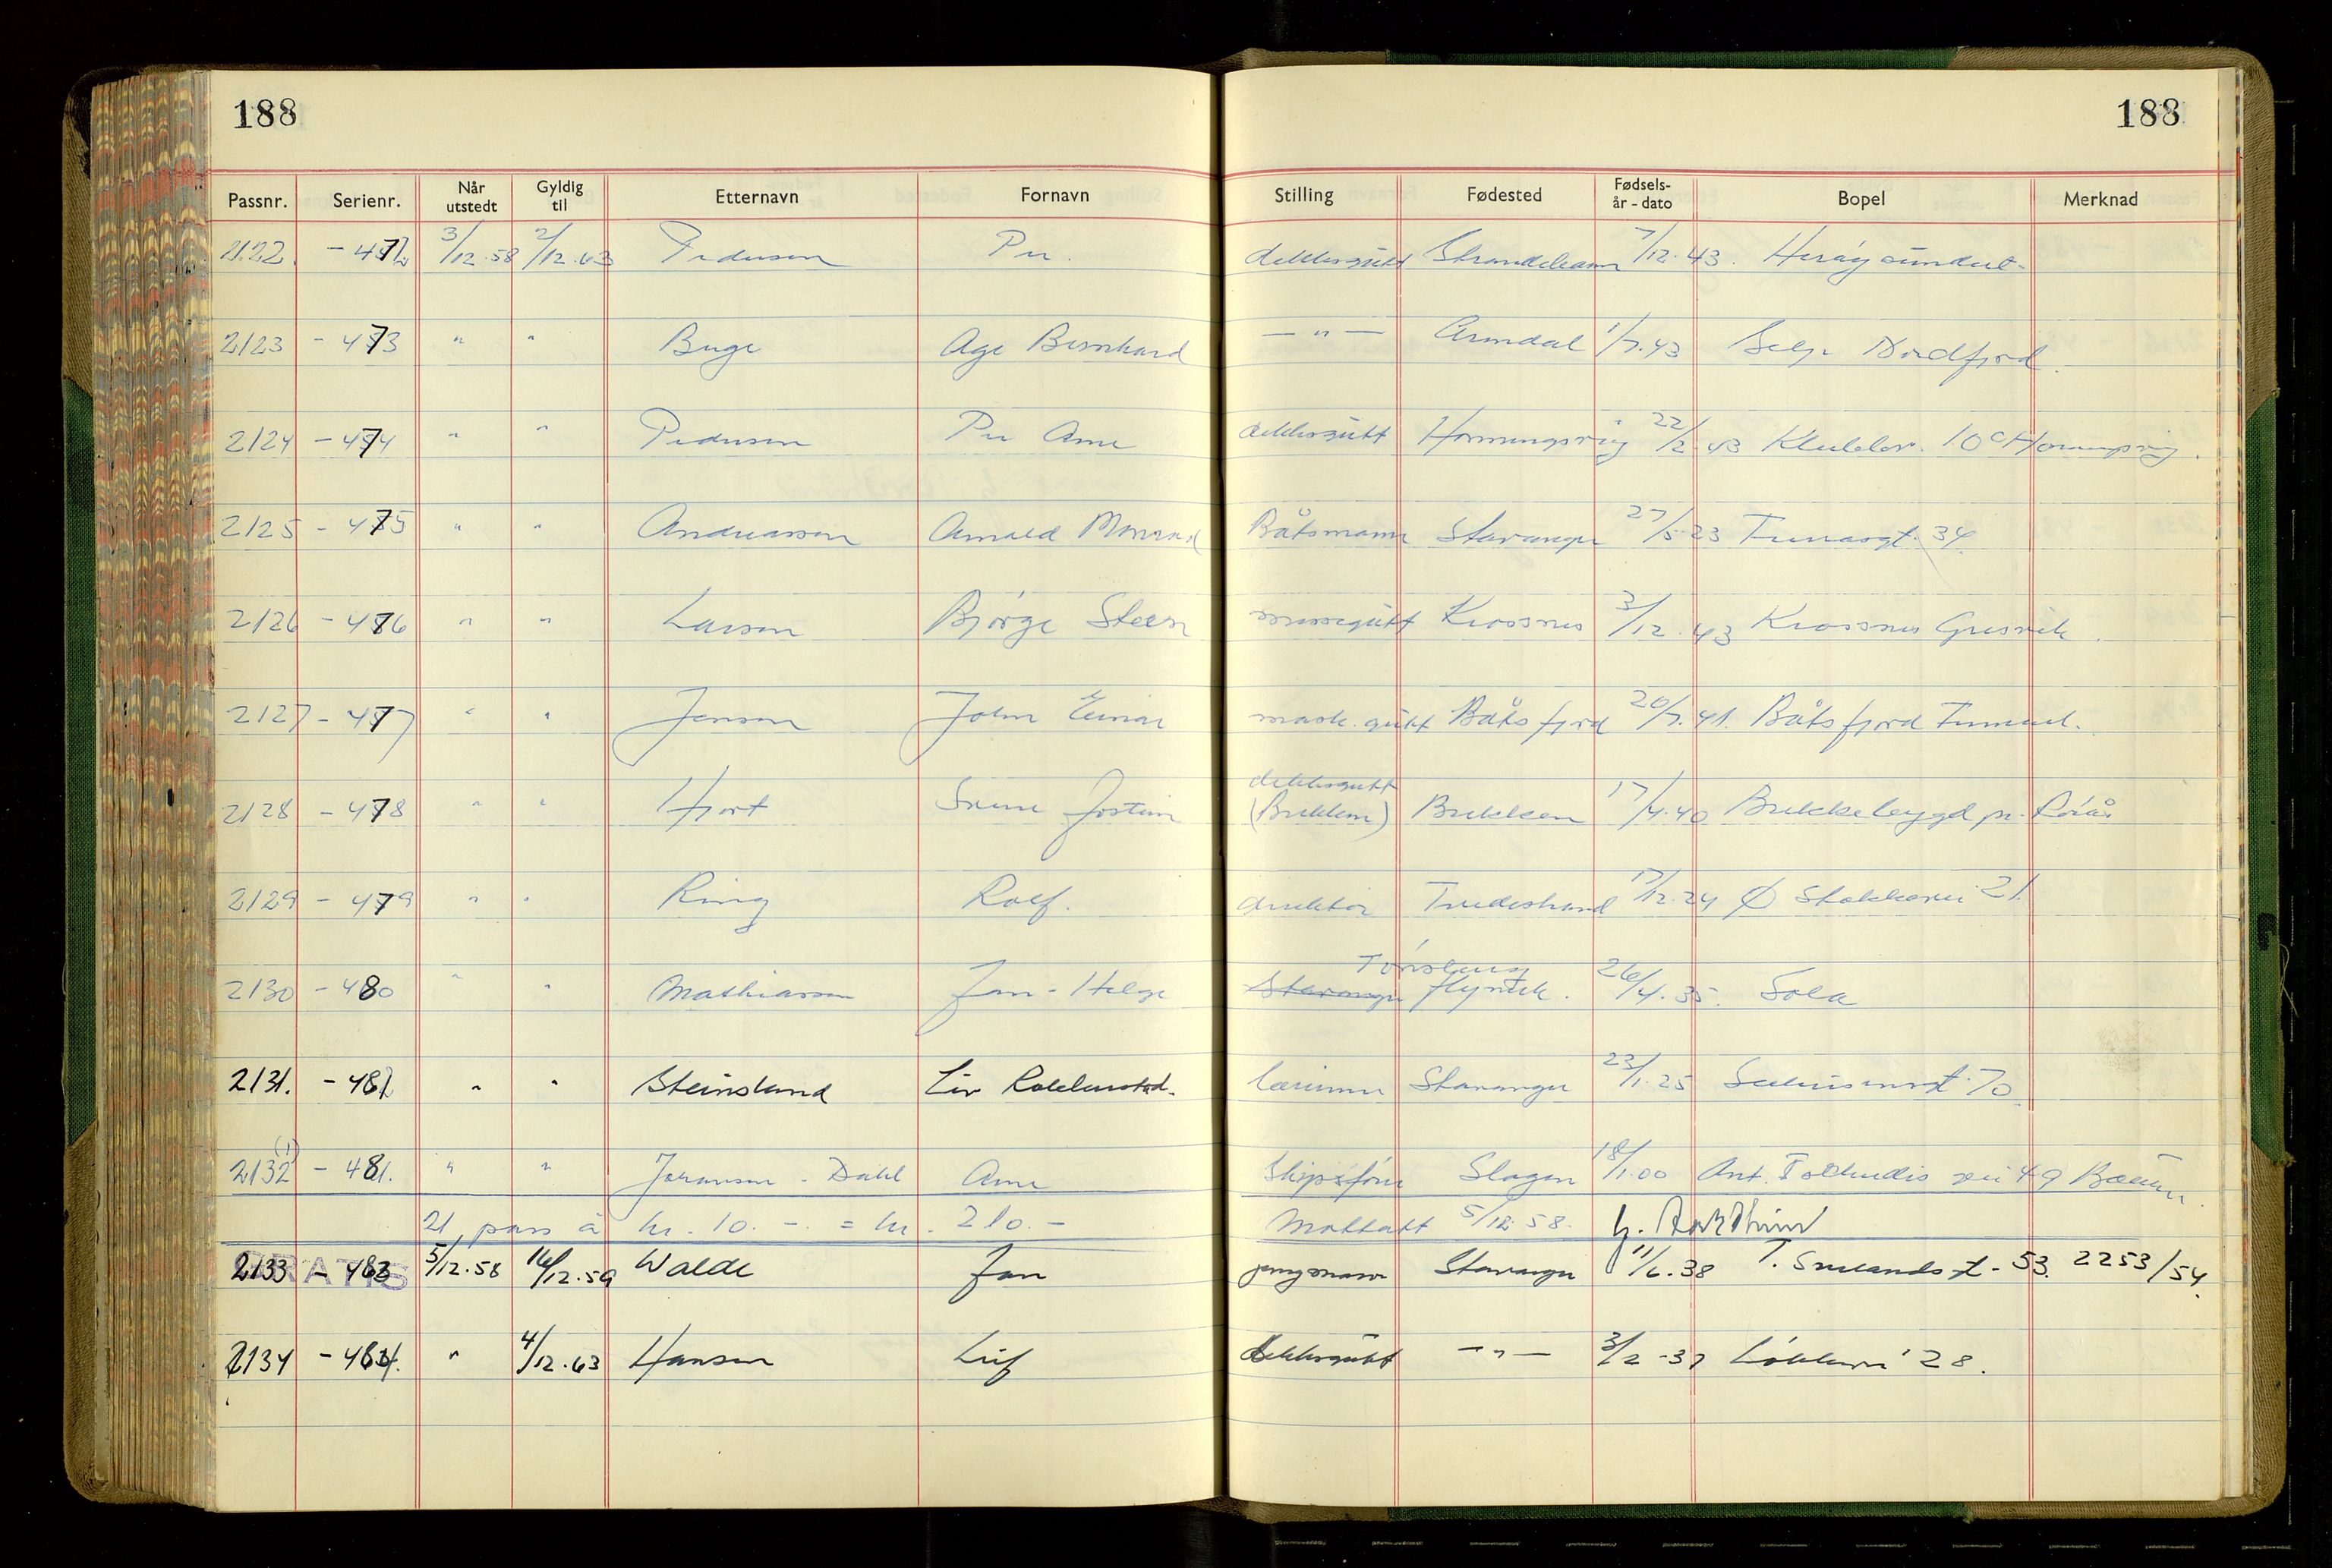 188 188
Passnr. Serienr. Når utstedt Gyldig til Etternavn Fornavn Stilling Fødested Fødsels-år - dato Bopel Merknad
2122. - 472 3/12.58 2/12.63 Pedersen Per. dekksgutt 7/12.43. Herøysundet.
2123 - 473 " " Buge Age Bernhard — " — Arendal 1/7.43 Selje Nordfjord.
2124 - 474 " " Pedersen Per Arne dekksgutt Honningsvåg 22/2.43 Klubbv. 10c Honningsvåg.
2125 - 475 " " Andreassen Arnold Monrad Båtsmann Stavanger 27/5-23 34.
2126 - 476 " " Larsen Bjørge Steen messegutt Krossnes 3/12.43 Krossnes Gresvik.
2127 - 477 " " Jensen John Einar mask.gutt Båtsfjord 20/7.41. Båtsfjord Finnm.
dekksgutt
2128 - 478 " " Hjort Sverre Jostein (Brekken) Brekken 17/4.40 Brekkebygd pr. Røros
2129 - 479 " " Ring Rolf. direktør Tvedestrand 17/12.24 Ø Stokkavei 21.
Tønsberg
2130 - 480 " " Mathiassen Jan-Helge Stavanger flytekn. 26/4.35. Sola
2131. - 482 " " Steinsland Liv lærerinne Stavanger 23/1.25 70.
(1)
2132 - 481. " " Johansen - Dahl Arne Skipsfører Slagen 18/1.00 Ant. vei 49 Bærum.
21 pass à kr. 10.-. = kr. 210.- Mottatt 5/12.58.
GRATIS
2133 - 483 5/12.58 16/12.59 Walde Jan jungmann Stavanger 11/6.38 T. Smedandsgt - 53. 2253/54.
2134 - 484. " 4/12.63 Hansen Leif dekksgutt — " — 3/2-37 Løkkevei 28.